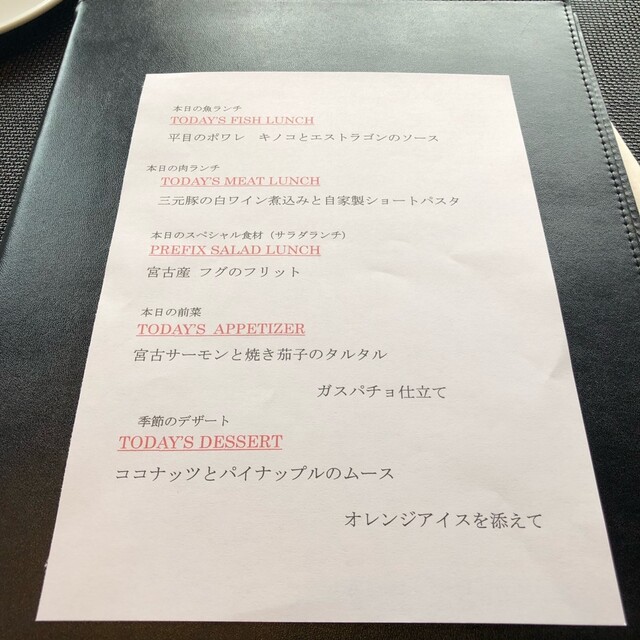 本日の魚ランチ
TODAY'S FISH LUNCH
平目のポワレ　キノコとエストラゴンのソース
本日の肉ランチ
TODAY'S MEAT LUNCH
三元豚の白ワイン煮込みと自家製ショートパスタ
本日のスペシャル食材（サラダランチ）
PREFIX SALAD LUNCH
宮古産 フグのフリット
本日の前菜
TODAY'S APPETIZER
宮古サーモンと焼き茄子のタルタル
ガスパチョ仕立て
季節のデザート
TODAY'S DESSERT
ココナッツとパイナップルのムース
オレンジアイスを添えて